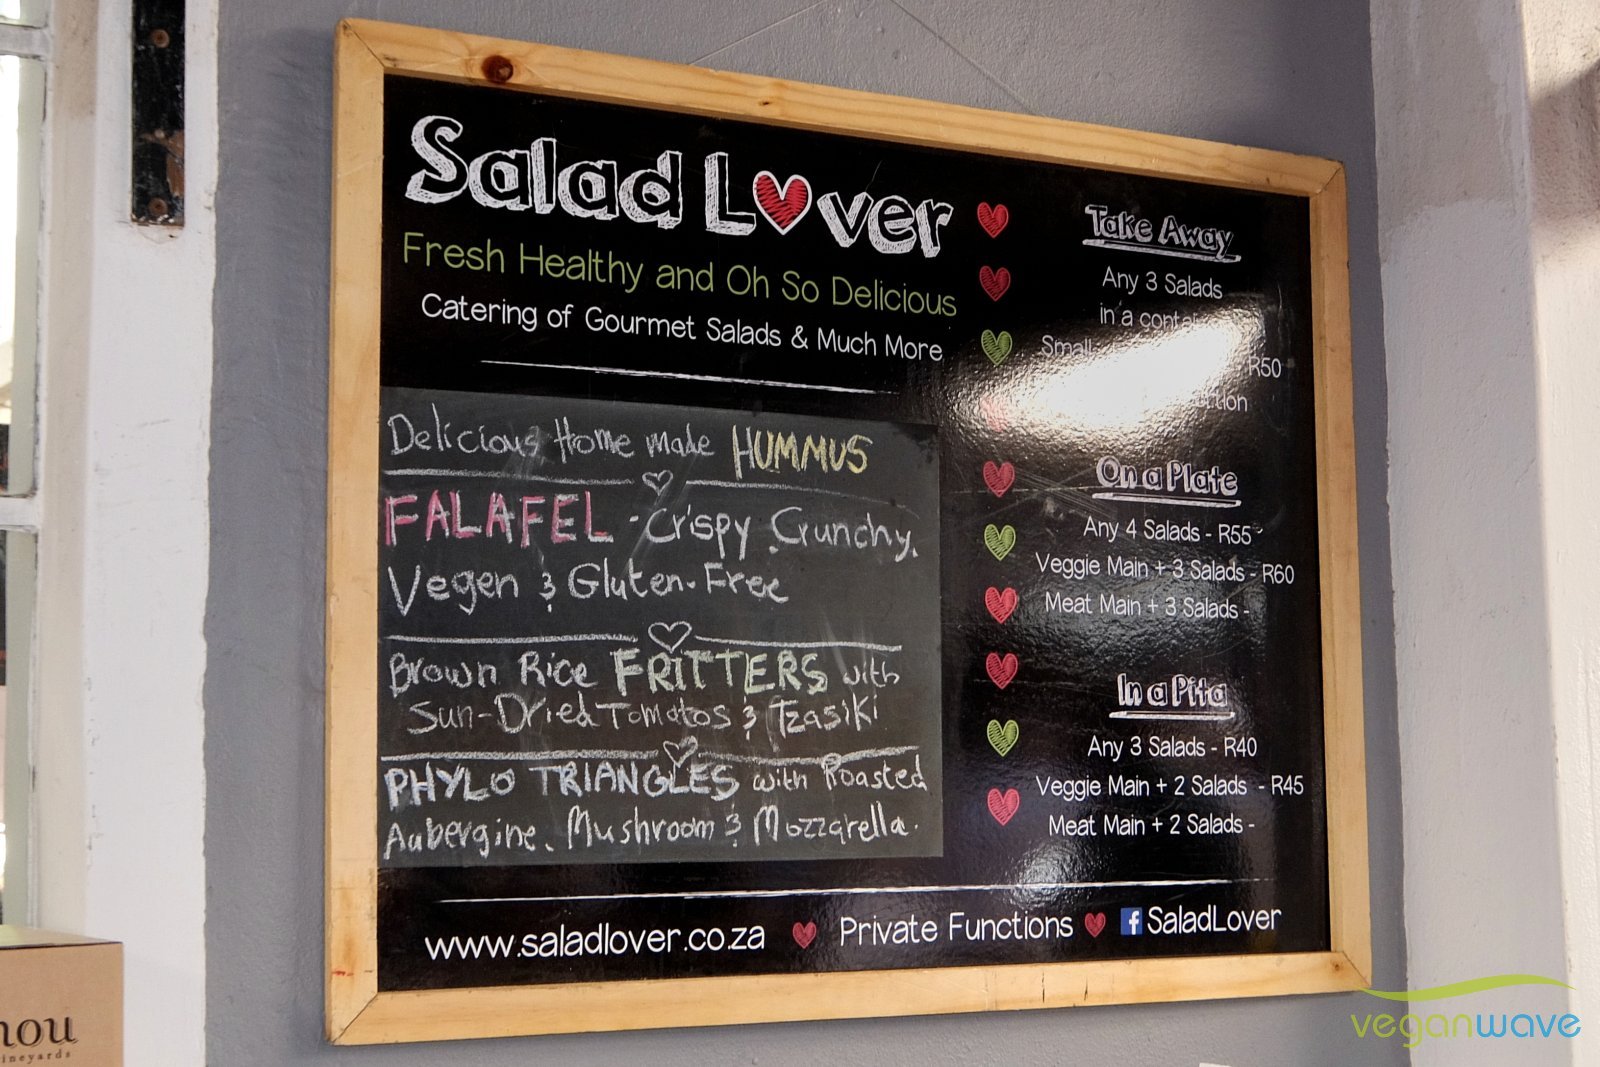 Salad Lover
Fresh Healthy and Oh So Delicious
Catering of Gourmet Salads & Much More
Delicious Home made HUMMUS
FALAFEL - Crispy, Crunchy,
Vegen & Gluten-Free
Brown Rice FRITTERS with
Sun-Dried Tomatos & Tzasiki
PHYLO TRIANGLES with Roasted
Aubergine, Mushroom & Mozzarella.
Take Away
Any 3 Salads
in a
Small
R50
On a Plate
Any 4 Salads - R55
Veggie Main + 3 Salads - R60
Meat Main + 3 Salads -
In a Pita
Any 3 Salads - R40
Veggie Main + 2 Salads - R45
Meat Main + 2 Salads -
www.saladlover.co.za Private Functions f SaladLover
veganwave